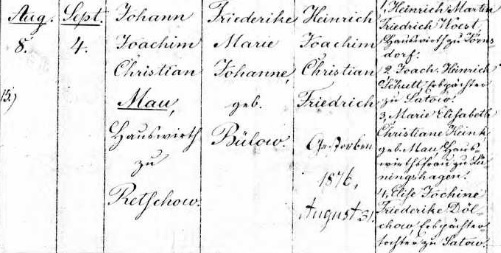 Aug.
8.
15.)
Sept.
4.
Johann
Joachim
Christian
Mau,
Hauswirth
zu
Retschow.
Friederike
Marie
Johanne,
geb.
Bülow.
Heinrich
Joachim
Christian
Friedrich
Gestorben
1876,
August 31.
1. Heinrich Martin
Friedrich Voest,
Hauswirth zu
dorf.
2. Joach. Heinrich
Schutt, Erbpächter
zu Satow.
3. Marie Elisabeth
Christiane Heink
geb. Mau, Haus-
wirthsfrau zu
ningshagen.
4. Elise Jochine
Friederike Döl-
chow, Erbpächter
tochter zu Satow.